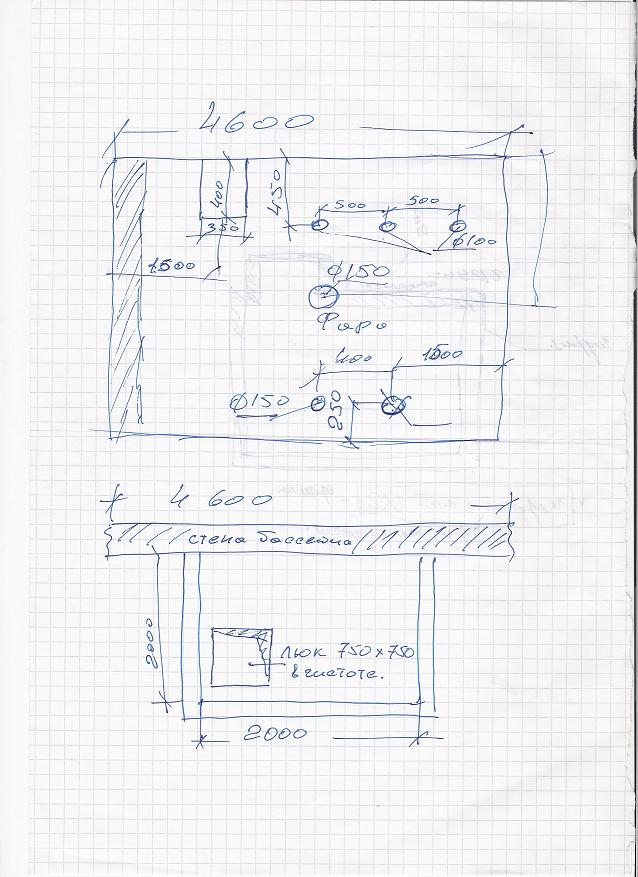 4600
400
450
500 500
350
Ø100
1500
Ø150
Фара
400 1500
Ø150
250
4 600
стена бассейна
2000
люк 750x750
в чистоте.
2000